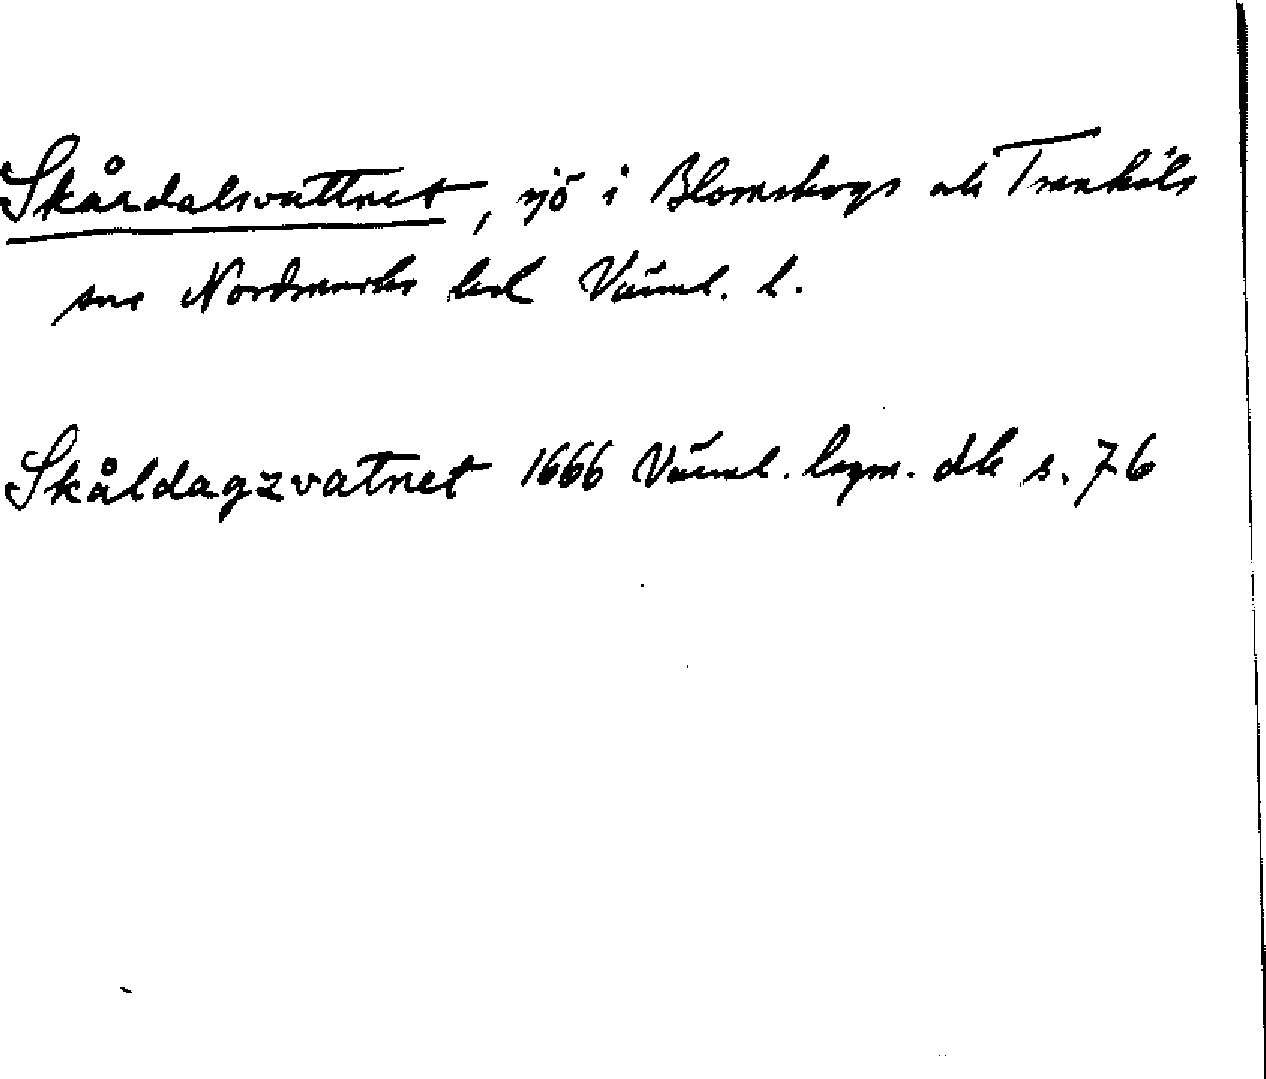 Skårdalsvattnet, sjö i Blomskogs och Trankils
snr Nordmarks hd Värml. l.
Skåldagzvatnet 1666 Värml. lagm. db s. 76